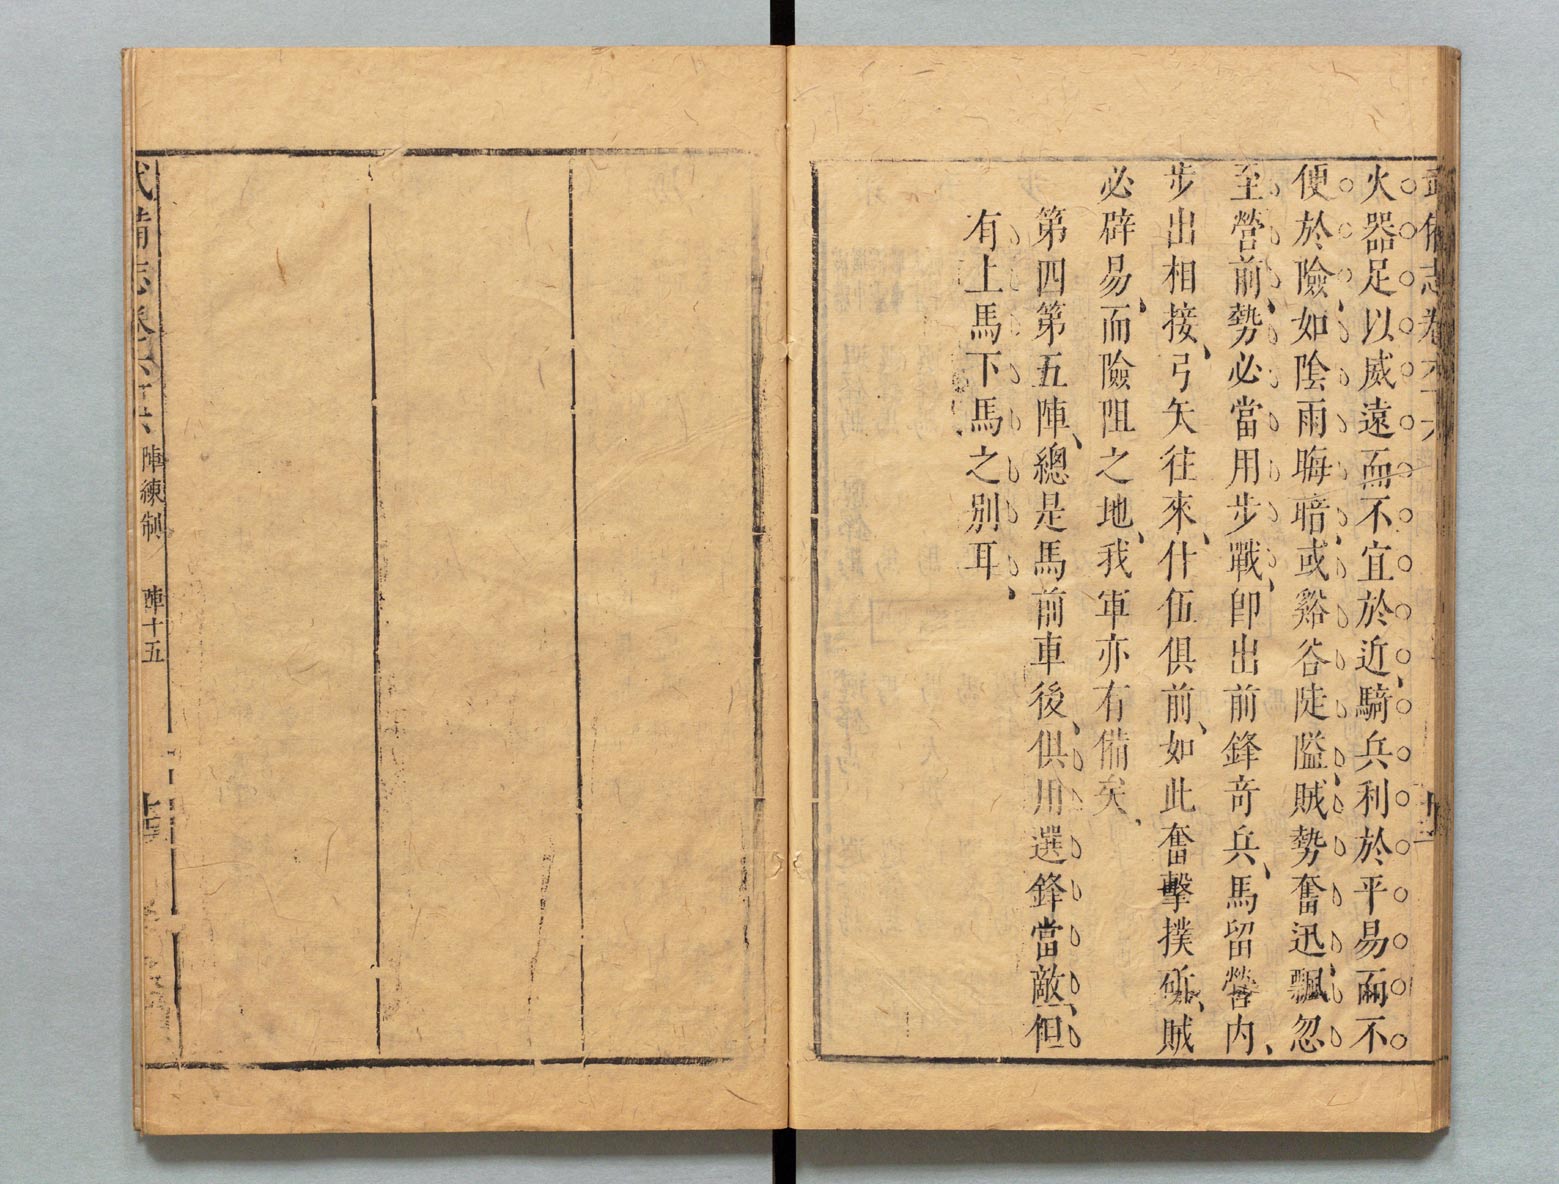 武備志卷六十六
火器足以威遠而不宜於近、騎兵利於平易而不
便於險、如陰雨晦暗、或谿谷陡隘、賊勢奮迅飄忽、
至營前、勢必當用步戰、卽出前鋒奇兵、馬留營內、
步出相接、弓矢往來、什伍俱前、如此奮擊撲斫、賊
必辟易、而險阻之地、我軍亦有備矣、
第四第五陣、總是馬前車後、俱用選鋒當敵、但
有上馬下馬之別耳、
武備志卷六十六 陣練制 陣十五